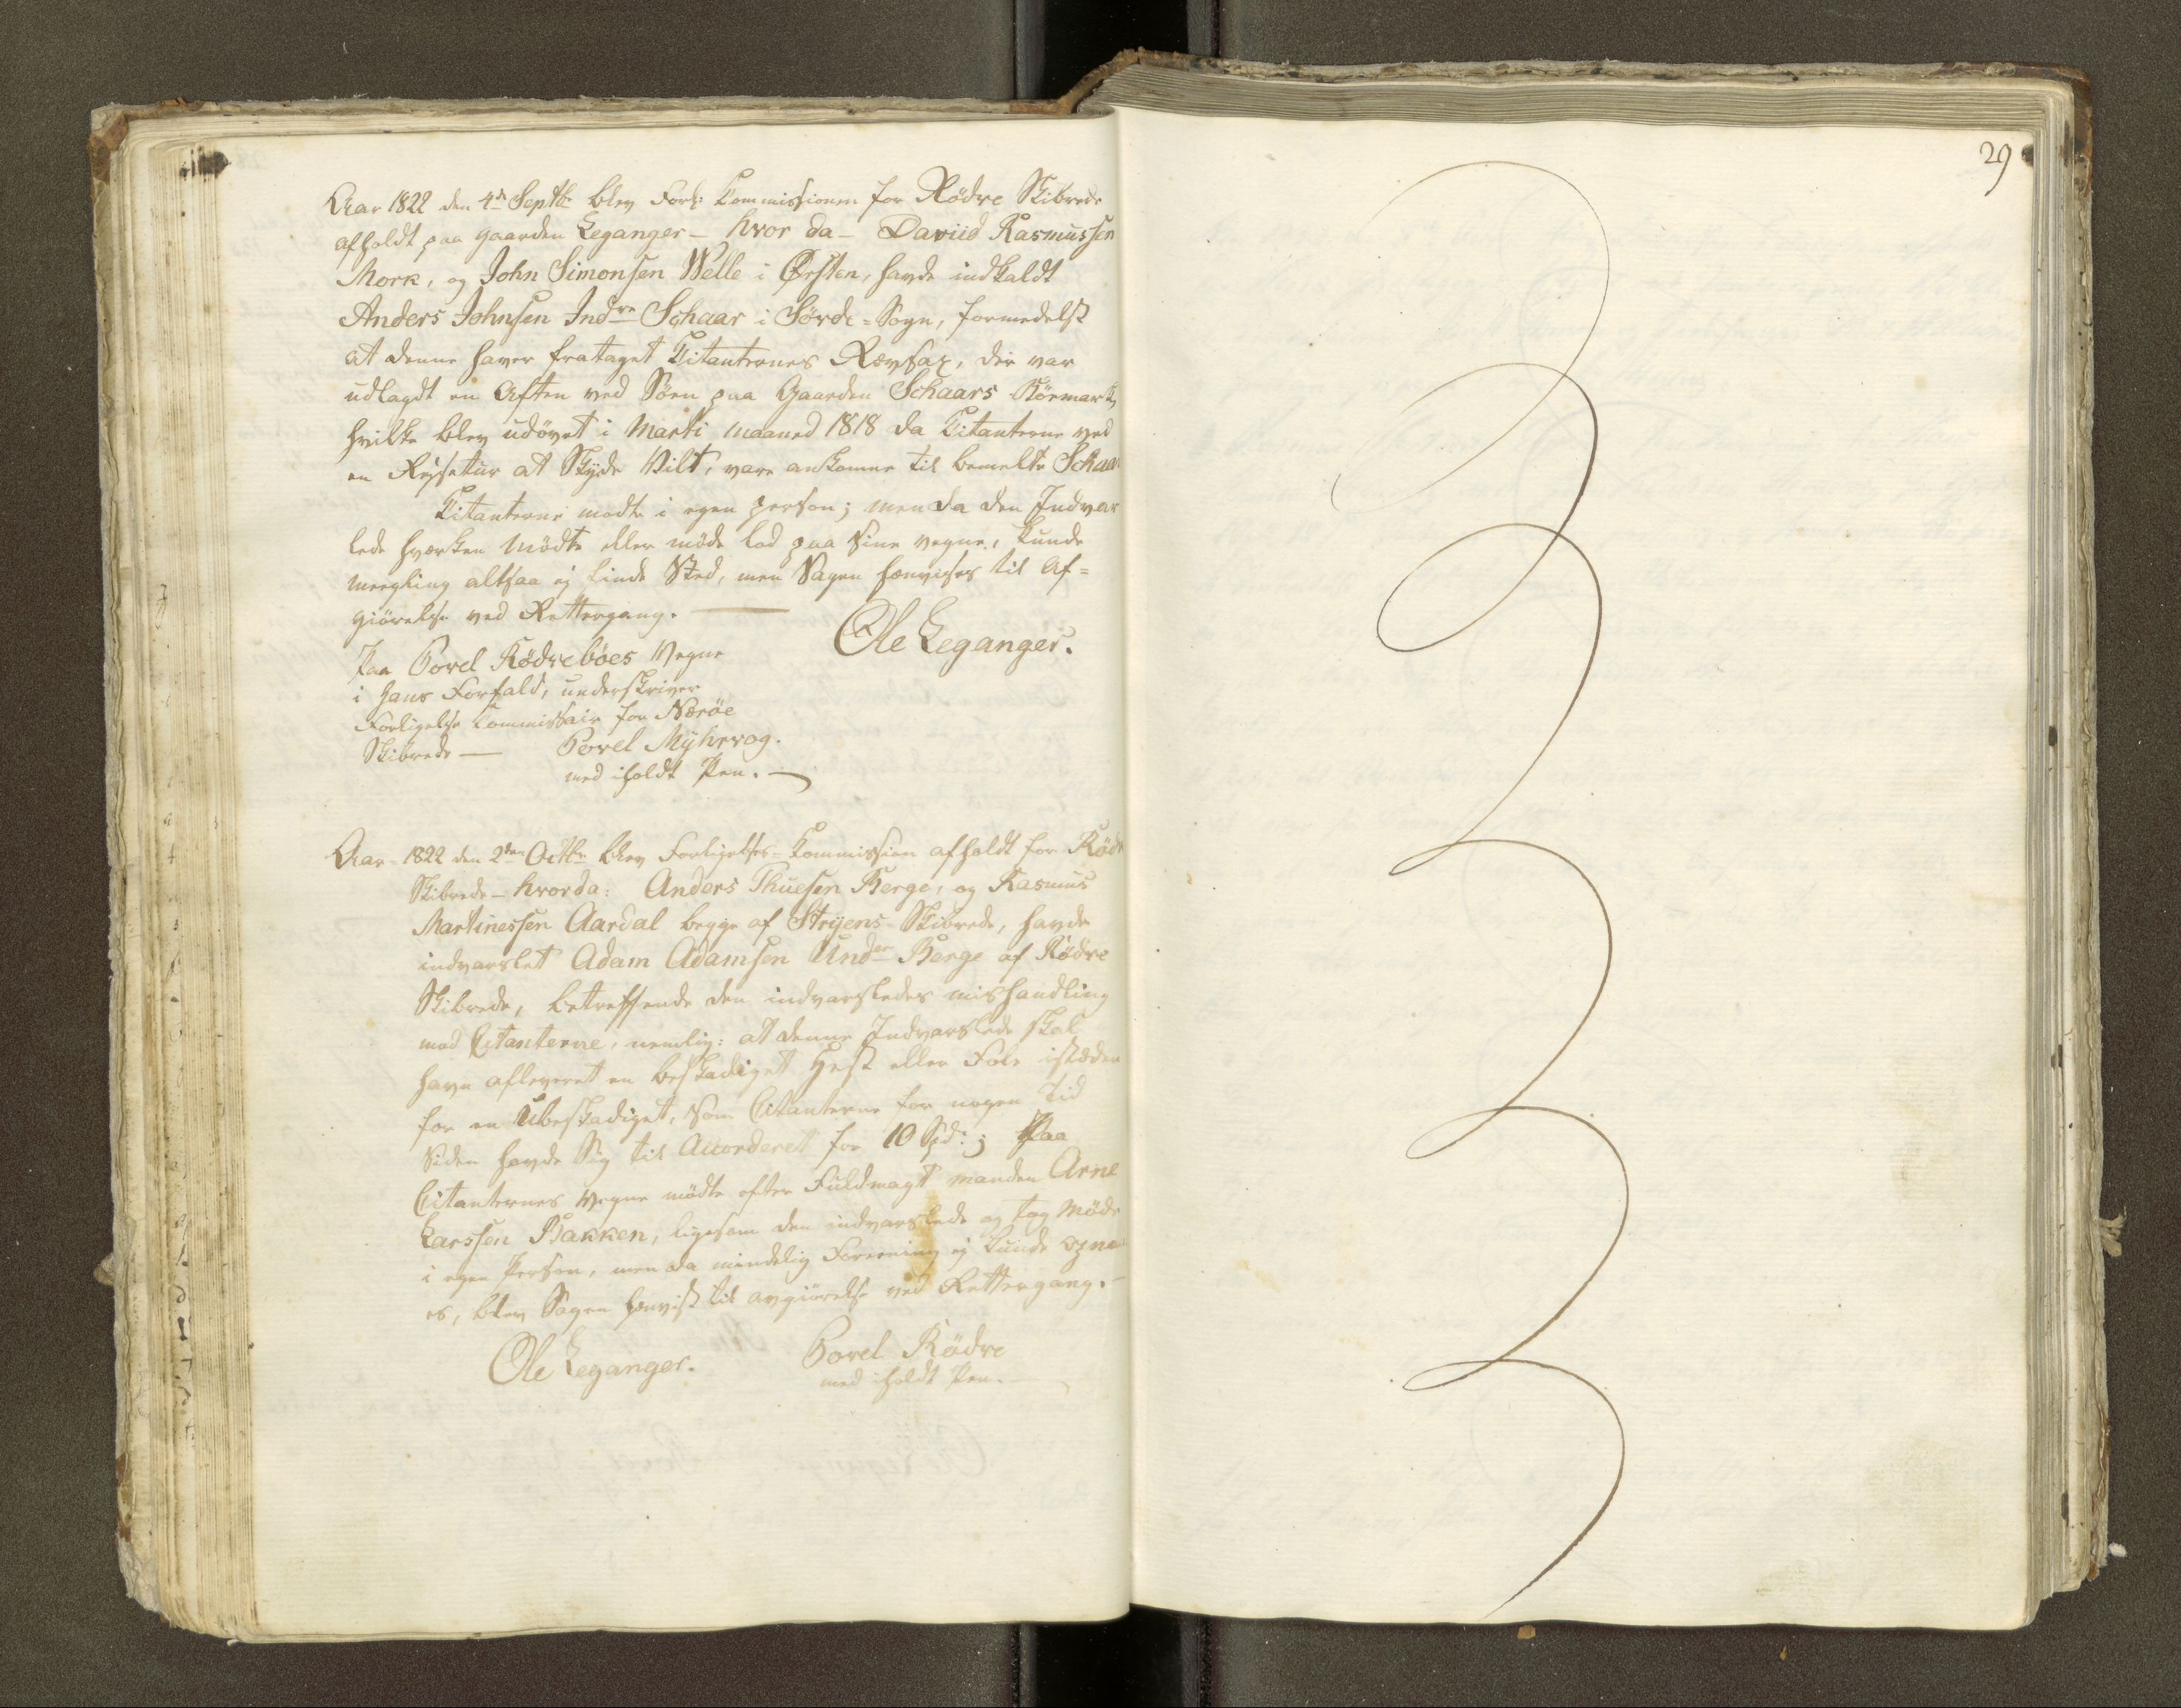 Aar 1822 den 4de Septbr blev Forl: Commissionen for Rödre Skibrede
afholdt paa Gaarden Leganger – hvor da – Daviid Rasmussen
Mork, og John Simonsen Welle i Ørsten, havde indkaldt
Anders Johnsen Indre Schaar i Sørde-Sogn, formedelst
at denne haver frataget Citanternes Rævsax, der var
udlagdt en Aften ved Söen paa Gaarden Schaars
hvilke blev udövet i Marti maaned 1818 da Citanterne ved
en Rejsetur at Skyde Vilt, vare ankomne til bemelte Schaar
Citanterne mødte i egen person; men da den Indvar
lede hverken Mödte eller møde lod paa Sine vegne, kunde
meegling altsaa ej finde Sted, men Sagen henvises til Af=
giörelse ved Rettergang. —
Ole Leganger.
Paa Povel Rödreböes Vegne
i Hans Forfald, underskriver
Forligelse Commissair for Neröe
Skibrede — Povel Myhrvog.
med iholdt Pen. —
Aar 1822 den 2den Octbr blev Forligelses-Commission afholdt for Rödr
Skibrede – hvor da: Anders Thuesen Berge, og Rasmus
Martinessen Aardal begge af Stryens-Skibrede, havde
indvarslet Adam Adamsen Under Berge af Rödre
Skibrede, betreffende den indvarsledes mishandling
mod Citanterne, nemlig: at denne Indvarslede skal
have afleveret en beskadiget Hest eller Fole isteden
for en Ubeskadiget, som Citanterne for nogen Tid
siden havde Sig til Accorderet for 10 Spd:; Paa
Citanternes Vegne mödte efter Fuldmagt manden Arne
Larssen Bakken, ligesom den indvarslede og tog Möde
i egen Person, men da mindelig Foreening ej kunde opna
es, blev Sagen henvist til avgiörelse ved Rettergang. –
Ole Leganger. Povel Rödre
med iholdt Pen. —
29